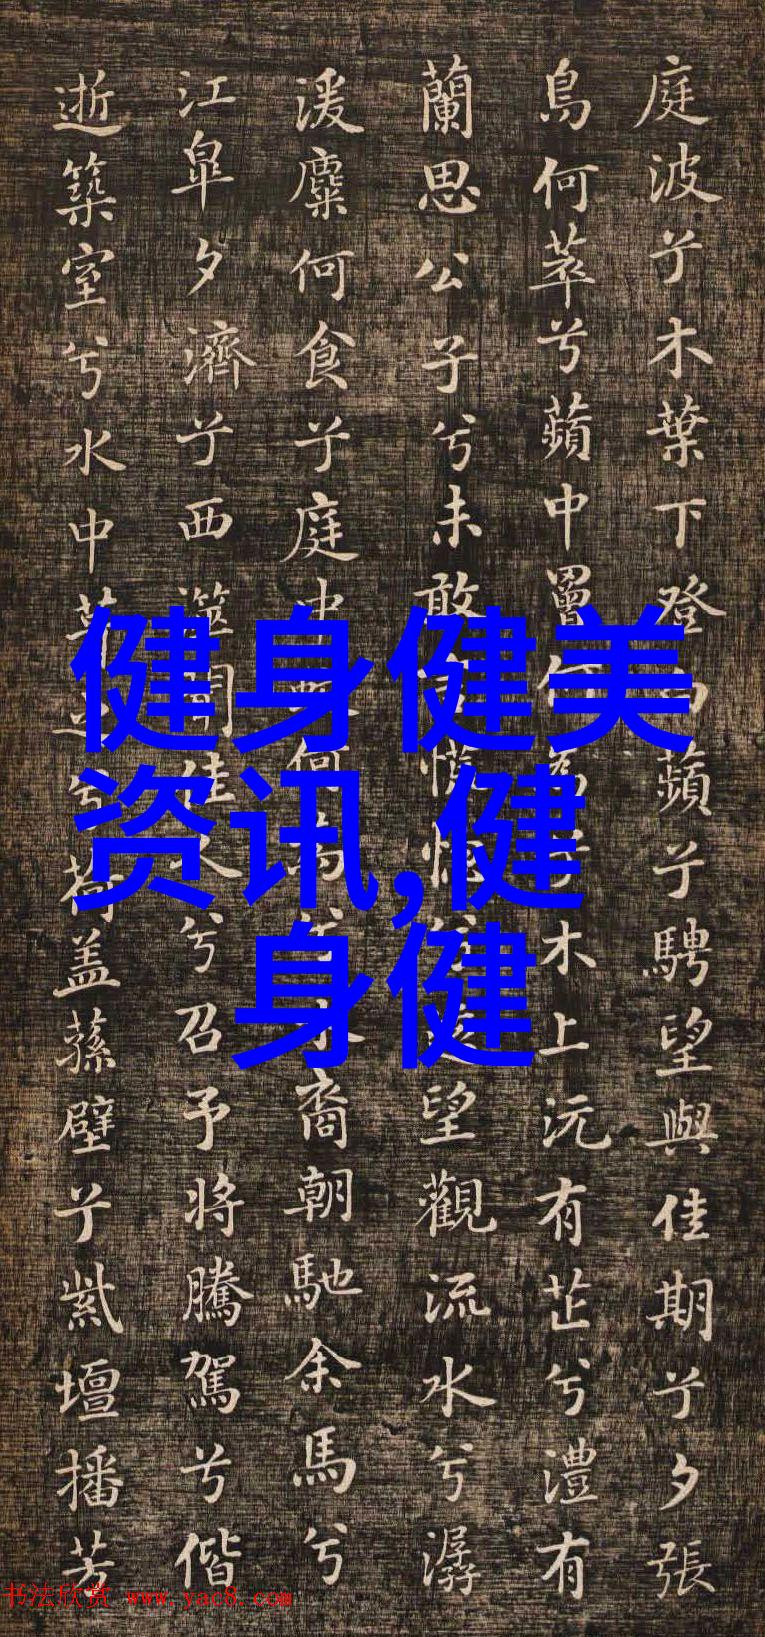 庭波兮木葉下登白蘋兮騁望與佳期兮夕張
鳥何萃兮蘋中罾何為兮木上沅有芷兮澧有
蘭思公子兮未敢言慌惚兮遠望觀流水兮潺
湲麋何食兮庭中何為兮水裔朝馳余馬兮
江皋夕濟兮西澨聞佳人兮召予將騰駕兮偕
逝築室兮水中葺之兮荷盖蓀壁兮紫壇播芳
健身健美
资讯,健
身健
书法欣赏 www.yac8.com